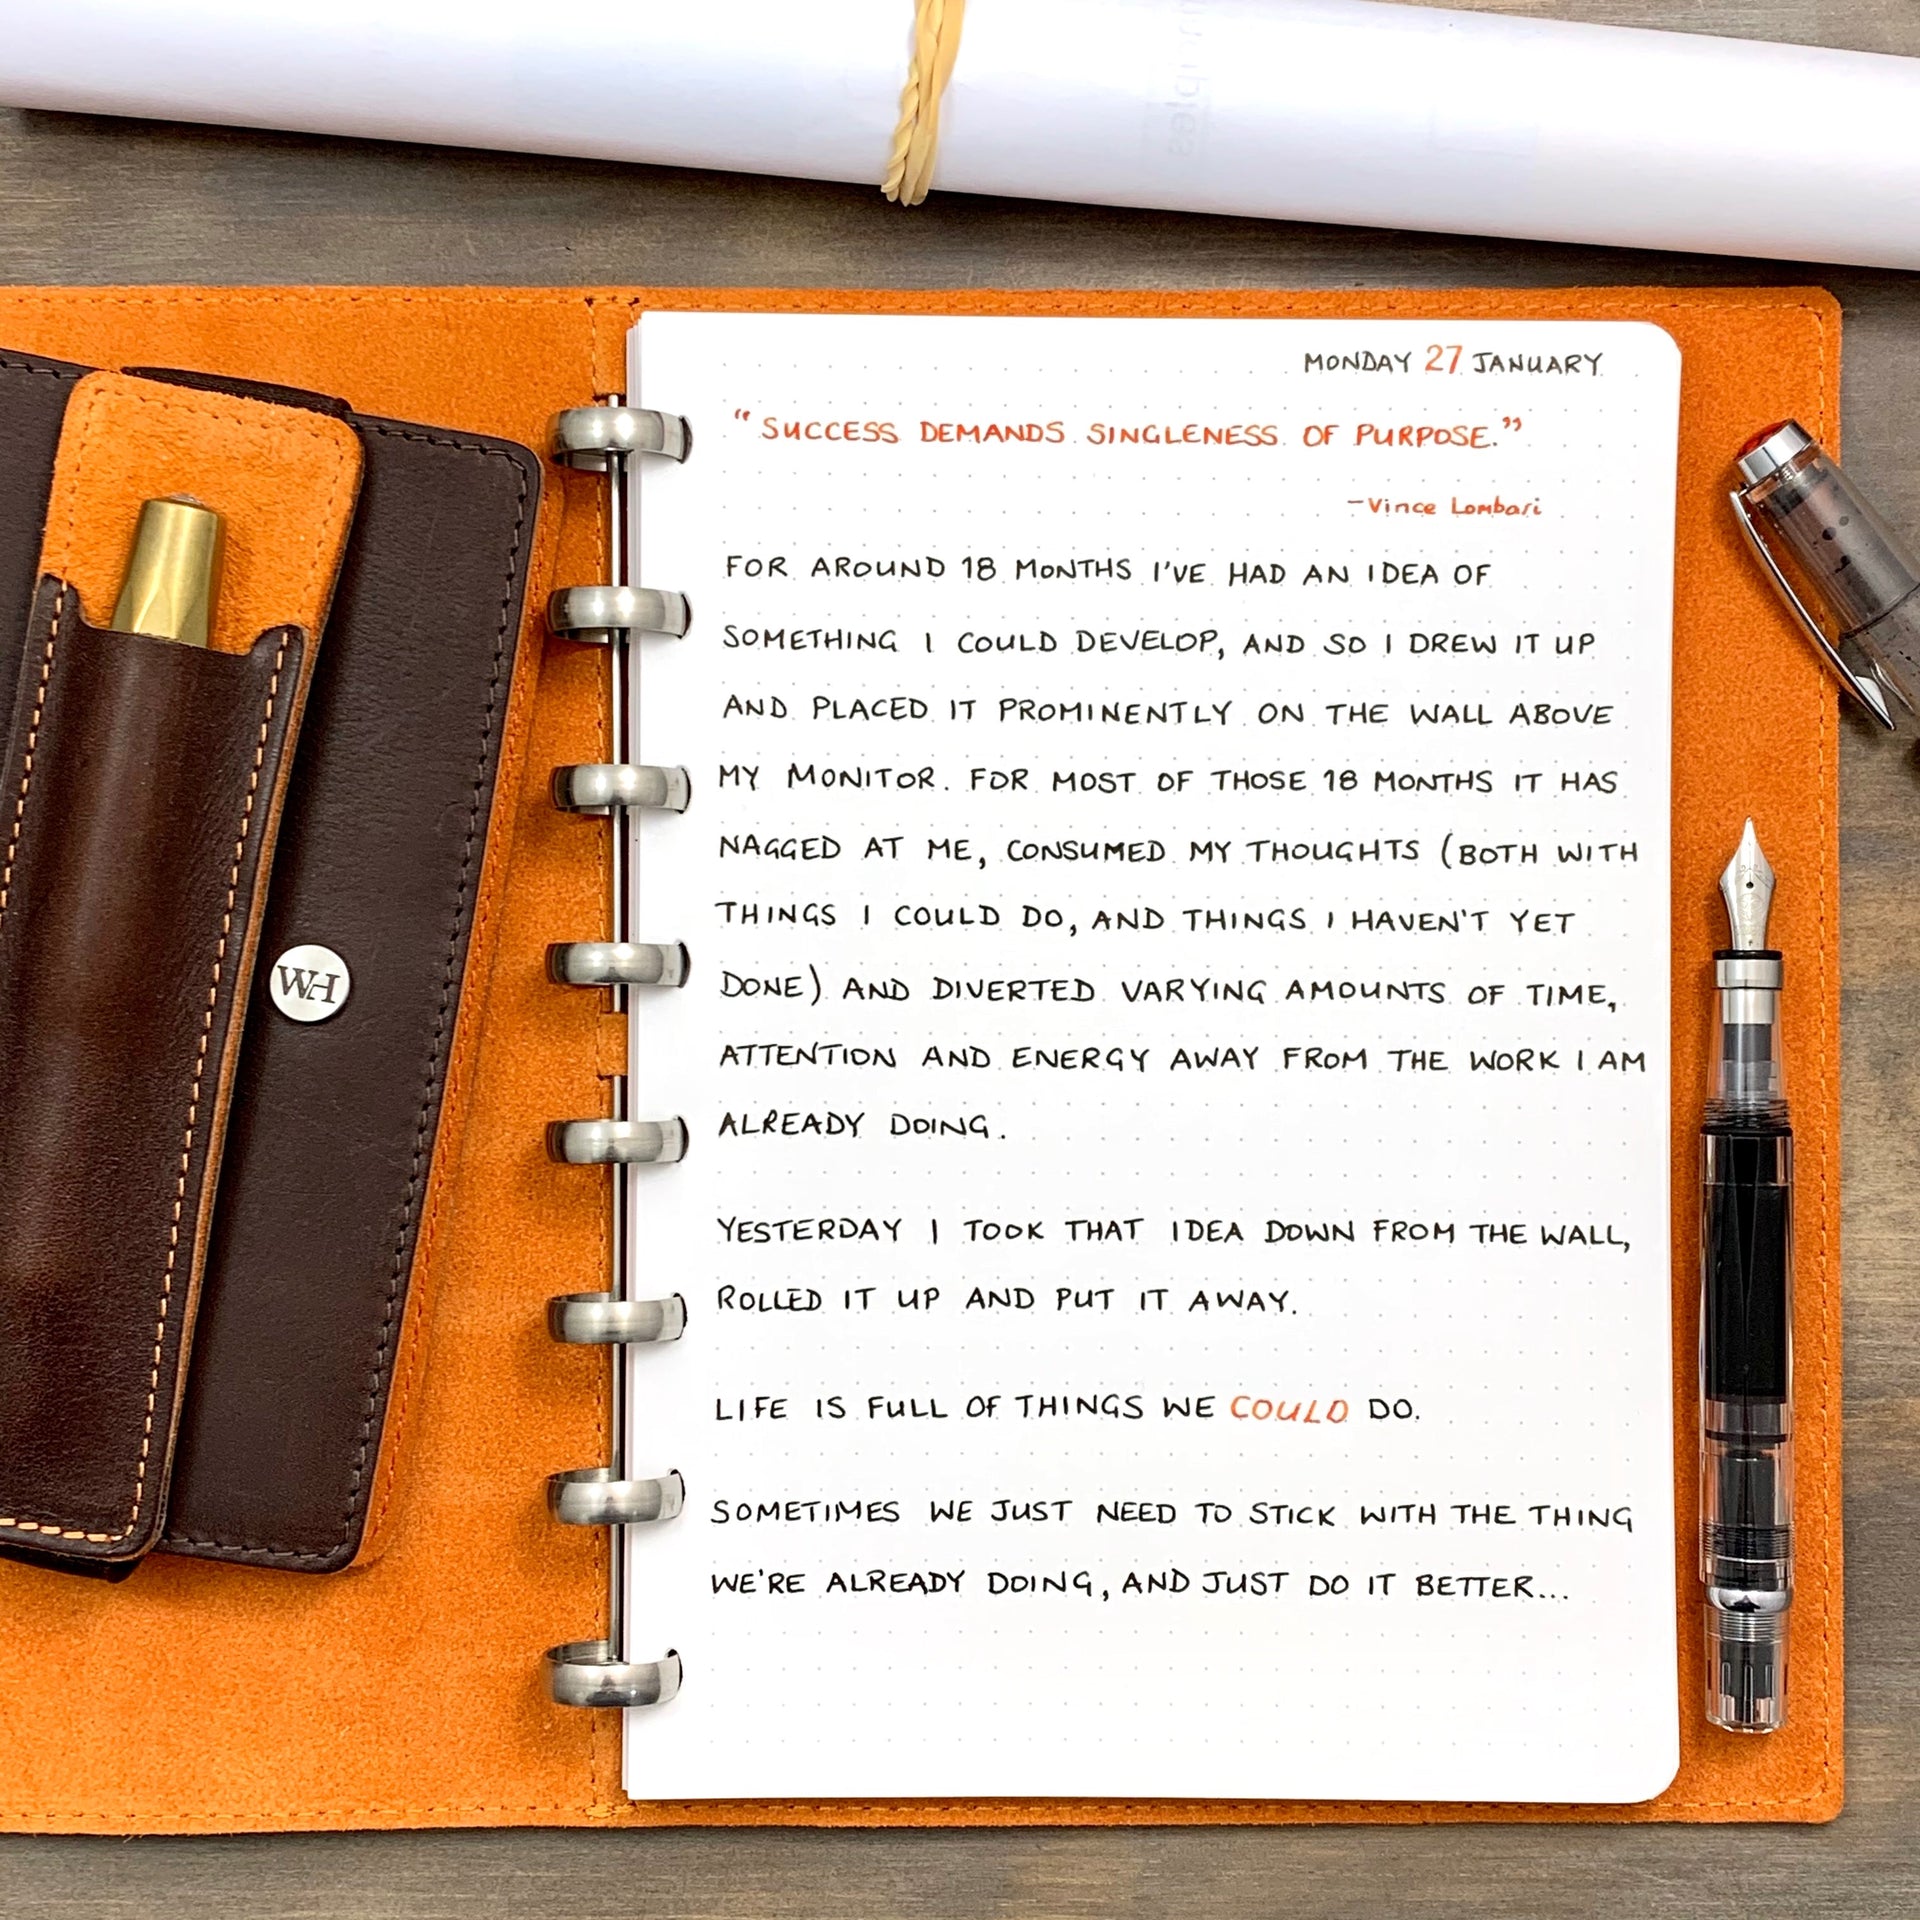 MONDAY 27 JANUARY
"SUCCESS DEMANDS SINGLENESS OF PURPOSE."
-Vince Lombari
FOR AROUND 18 MONTHS I'VE HAD AN IDEA OF
SOMETHING I COULD DEVELOP, AND SO I DREW IT UP
AND PLACED IT PROMINENTLY ON THE WALL ABOVE
MY MONITOR. FOR MOST OF THOSE 18 MONTHS IT HAS
NAGGED AT ME, CONSUMED MY THOUGHTS (BOTH WITH
THINGS I COULD DO, AND THINGS I HAVEN'T YET
DONE) AND DIVERTED VARYING AMOUNTS OF TIME,
ATTENTION AND ENERGY AWAY FROM THE WORK I AM
ALREADY DOING.
YESTERDAY I TOOK THAT IDEA DOWN FROM THE WALL,
ROLLED IT UP AND PUT IT AWAY.
LIFE IS FULL OF THINGS WE COULD DO.
SOMETIMES WE JUST NEED TO STICK WITH THE THING
WE'RE ALREADY DOING, AND JUST DO IT BETTER...
WH